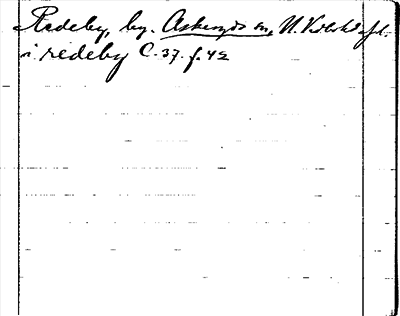 Redeby, by. Askeryds sn, N. Vedbo hd, Jkl.
i redeby C. 37. f. 42